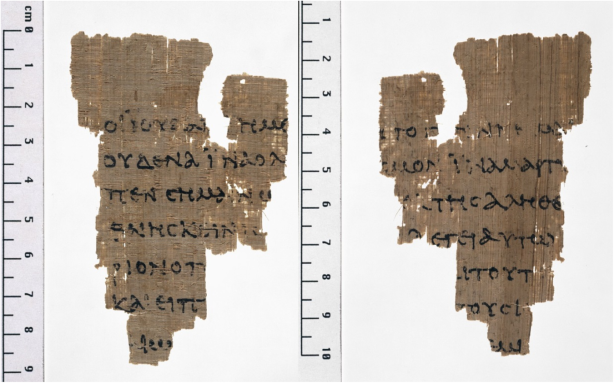 cm 0 1 2 3 4 5 6 7 8 9
ΟΙ ΙΟΥΔΑΙ ΗΜΕ
ΟΥΔΕΝΑ ΙΝΑ Ο ΛΟ
ΠΕΝ ϹΗΜΑΙΝΩ
ΘΝΗϹΚΕΙΝ
ΡΙΟΝ Ο Π
ΚΑΙ ΕΙΠ
1 2 3 4 5 6 7 8 9 10
ϹΜΟΝ ΙΝΑ ΜΑΡΤ
ΤΗϹ ΑΛΗΘΕ
ΛΕΓΕΙ ΑΥΤΩ
ΤΟΥΤ
ΤΟΥϹ Ι